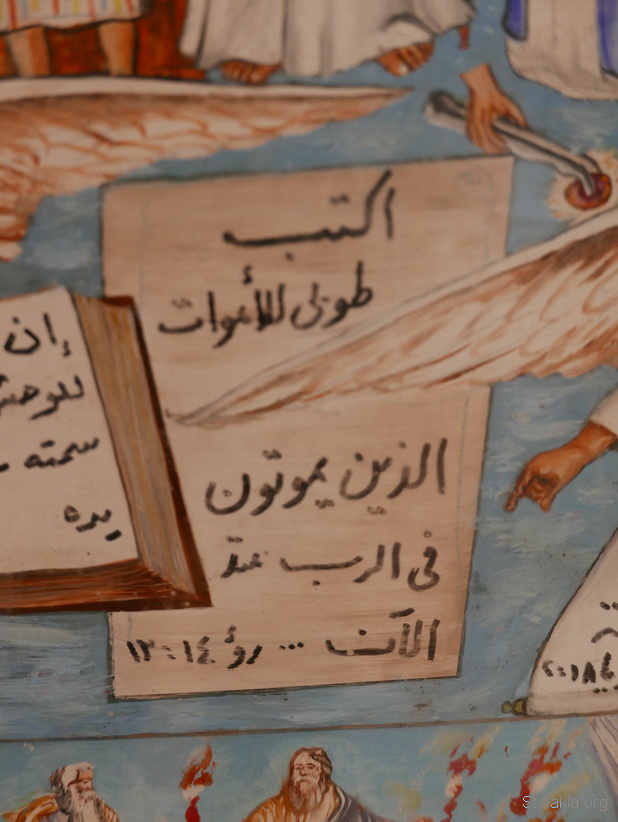 اكتب
طوبى للأموات
الذين يموتون
فى الرب منذ
الآن ... رؤ ١٤: ١٣
إن
للوحش
سمته
يده
St-Takla.org